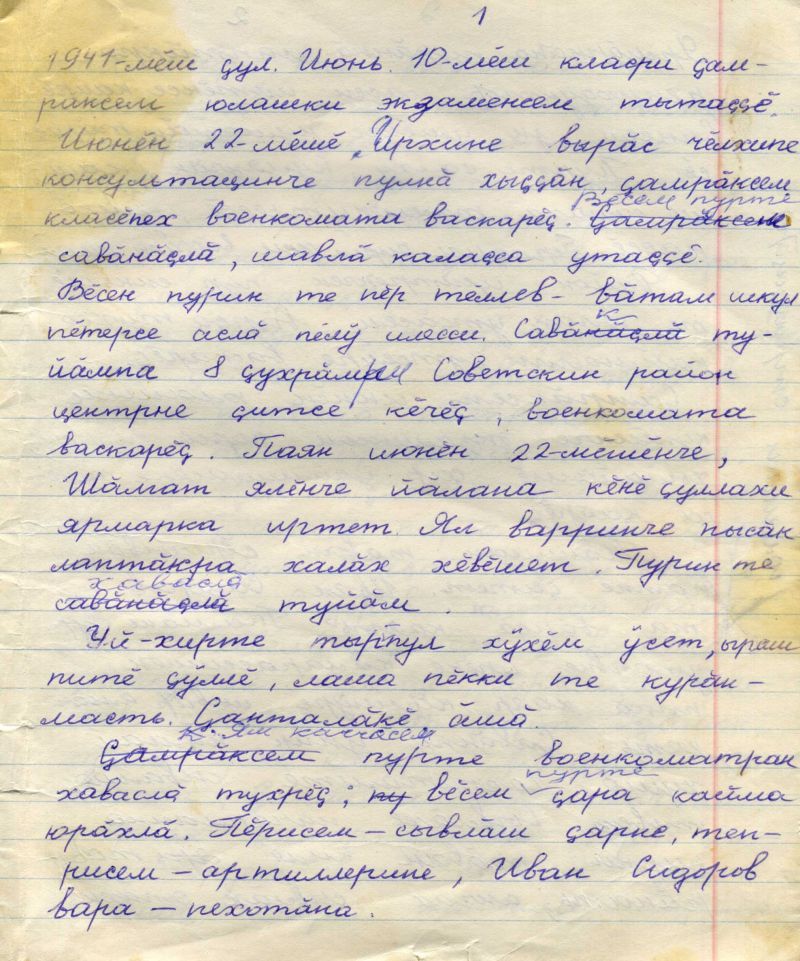 1
1941-мӗш ҫул. Июнь. 10-мӗш класри ҫам-
рӑксем юлашки экзаменсем тытаҫҫӗ.
Июнӗн 22-мӗшӗ. Ирхине вырӑс чӗлхипе
консультацинче пулнӑ хыҫҫӑн, ҫамрӑксем
класӗпех военкомата васкарӗҫ. Ҫамрӑксем
Вӗсем пурте
савӑнӑҫлӑ, шавлӑ калаҫса утаҫҫӗ.
Вӗсен пурин те пӗр тӗллев – вӑтам шкул
пӗтерсе аслӑ пӗлӳ илесси. Савӑнӑҫлӑ ту-
к
йӑмпа 8 ҫухрӑмри Советскин район
центрне ҫитсе кӗчӗҫ, военкомата
васкарӗҫ. Паян июнӗн 22-мӗшӗнче,
Шӑмат ялӗнче йӑлана кӗнӗ ҫуллахи
ярмарка иртет. Ял варринче пысӑк
лаптӑкра халӑх хӗвӗшет. Пурин те
хаваслӑ
савӑнӑҫлӑ туйӑм.
Уй-хирте тырпул хӳхӗм ӳсет, ыраш
питӗ ҫӳллӗ, лаша пӗкки те курӑн-
масть. Ҫанталӑкӗ ӑшӑ.
Ял каччӑсем
Ҫамрӑксем пурте военкоматран
хаваслӑ тухрӗҫ; вӗсем ҫара кайма
пурте
юрӑхлӑ. Пӗрисем – сывлӑш ҫарне, теп-
рисем – артиллерине, Иван Сидоров
вара – пехотӑна.